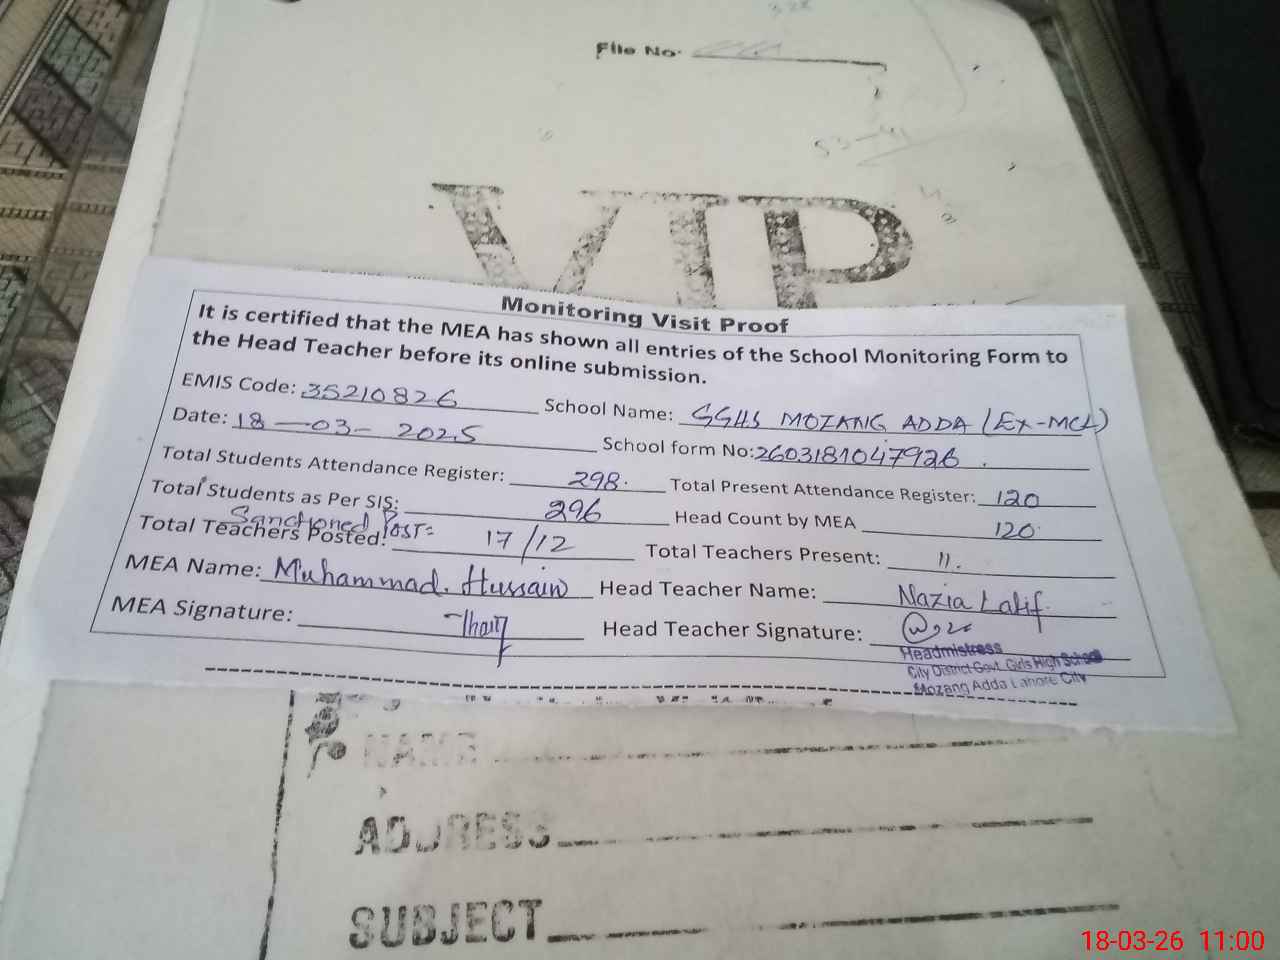 File No.
53-4
VIP
Monitoring Visit Proof
It is certified that the MEA has shown all entries of the School Monitoring Form to
the Head Teacher before its online submission.
EMIS Code: 35210826 School Name: GGHS MOZANG ADDA (Ex-MCL)
Date: 18-03-2025 School form No: 2603181047926.
Total Students Attendance Register: 298. Total Present Attendance Register: 120
Total Students as Per SIS: 296 Head Count by MEA 120
Sanctioned Post=
Total Teachers Posted: 17/12 Total Teachers Present: 11.
MEA Name: Muhammad. Hussain Head Teacher Name: Nazia Latif.
MEA Signature: Head Teacher Signature:
Headmistress
City District Govt. Girls High School
Mozang Adda Lahore City
NAME
ADDRESS
SUBJECT
18-03-26 11:00